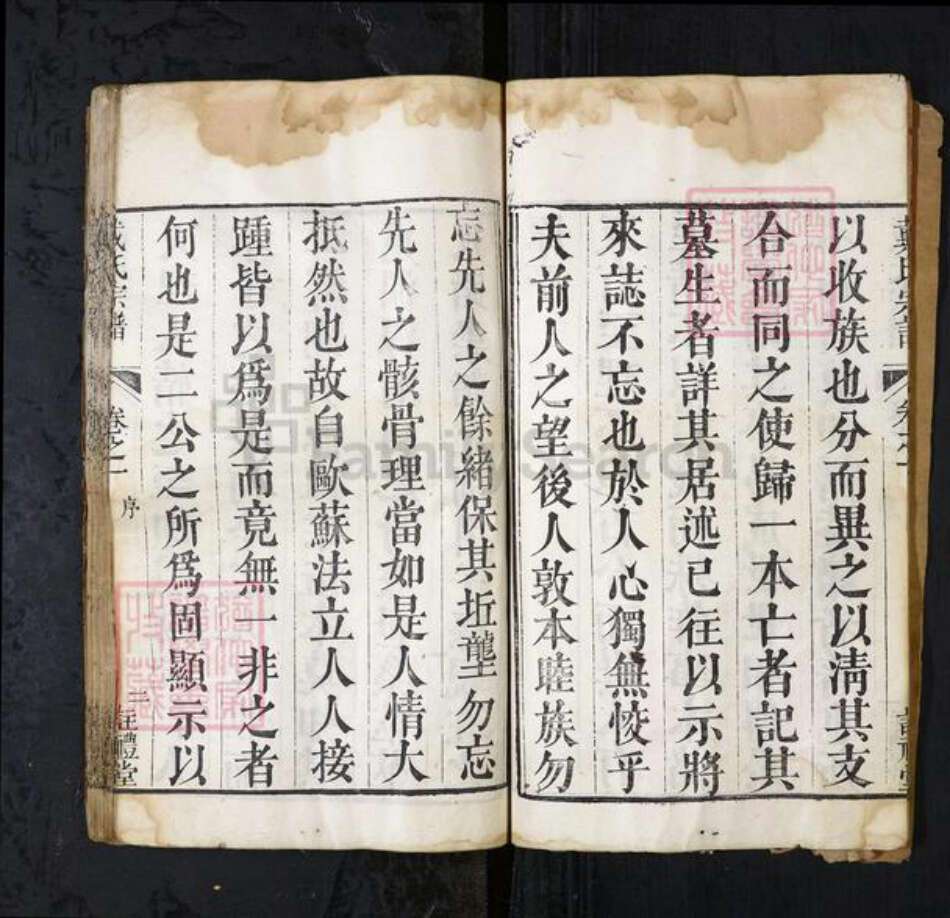 以收族也分而異之以清其支
合而同之使歸一本亡者記其
墓生者詳其居述已往以示將
來誌不忘也於人心獨無恔乎
夫前人之望後人敦本睦族勿
忘先人之餘緒保其坵壟勿忘
先人之骸骨理當如是人情大
抵然也故自歐蘇法立人人接
踵皆以爲是而竟無一非之者
何也是二公之所爲固顯示以
戴氏宗譜
卷之一
序
二
註禮堂
FamilySearch